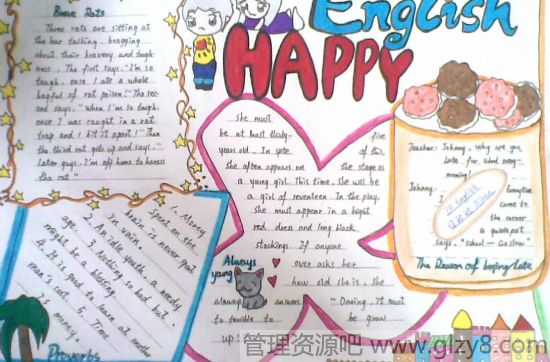 English
HAPPY
Brave Rats
Three rats are sitting at
the bar talking, bragging
about their bravery and tough-
ness. The first says, "I'm so
tough, once I ate a whole
bagful of rat poison!" The sec-
ond says, "When I'm so tough,
once I was caught in a rat
trap and I bit it apart!" Then
the third rat gets up and says, "
Later guys, I'm off home to harass
the cat."
She must
be at least thirty- five
years old. In spite of this,
she often appears on the stage as
a young girl. This time, she will be
a girl of seventeen. In the play,
she must appear in a bright
red dress and long black
stockings. If anyone
ever asks her
how old she is, she
always answers "Daring, it must
to terrible to be grow
up!
Always
young
Teacher: Johnny, why are you
late for school every
morning!
Johnny: Everytime
I come to
the corner
a guidepost
says, "School-Go Slow".
The Reason of being late
1. Money
spent on the
brain is never spent
in vain.
2. An idle youth, a needy
age.
3. Nothing so bad but
might be a blessing
4. It is good to learn at another
man's cost
5. Time
is money
Proverbs
管理资源吧 www.glzy8.com